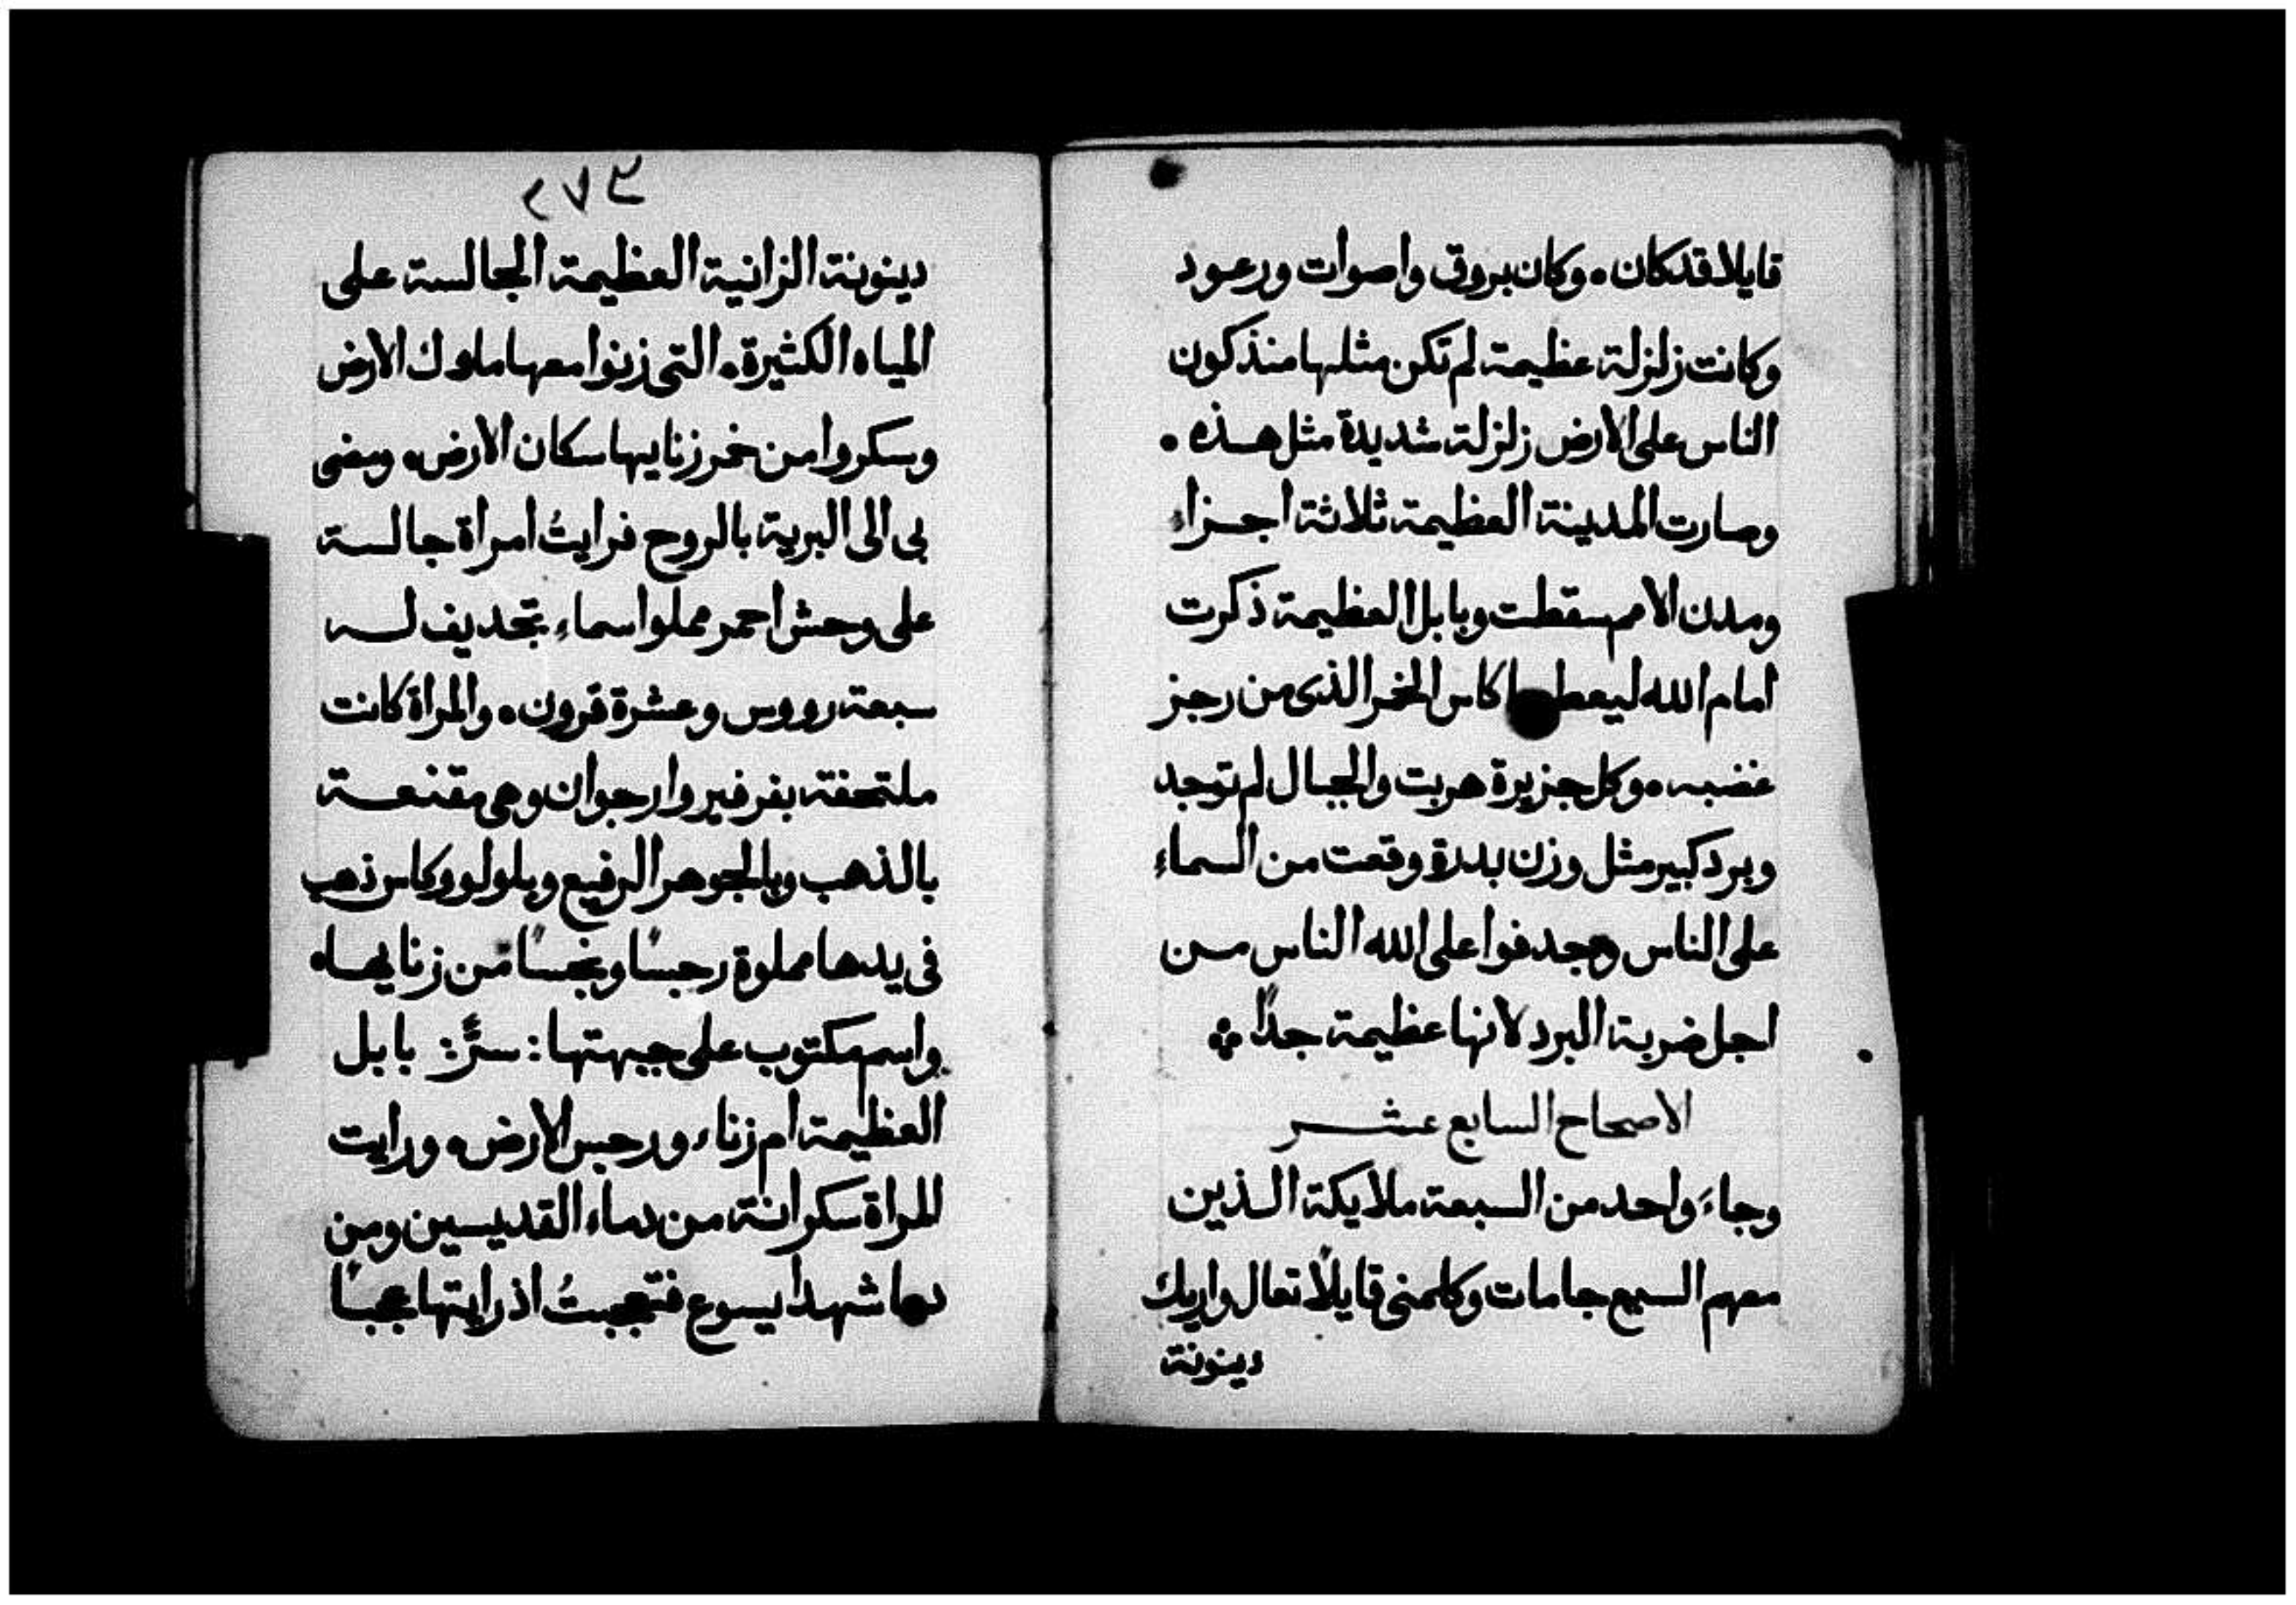 قايلا قد كان. وكان بروق واصوات ورعود
وكانت زلزلة عظيمة لم تكن مثلها منذ كون
الناس على الارض زلزلة شديدة مثل هذه.
وصارت المدينة العظيمة ثلاثة اجزاءِ
ومدن الامم سقطت وبابل العظيمة ذكرت
امام الله ليعطيها كاس الخمر الذى من رجز
غضبه. وكل جزيرة هربت والجبال لم توجد
وبرد كبير مثل وزن بدرة وقعت من السماءِ
على الناس وجدفوا على الله الناس من
اجل ضربة البرد لانها عظيمة جدًا
الاصحاح السابع عشر
وجاءَ واحد من السبعة ملايكة الذين
معهم السبع جامات وكلمنى قايلًا تعال واريك
دينونة
٢٧٣
دينونة الزانية العظيمة الجالسة على
المياه الكثيرة. التى زنوا معها ملوك الارض
وسكروا من خمر زنايها سكان الارض. ومضى
بى الى البرية بالروح فرايتُ امراة جالسة
على وحش احمر مملوا اسماءِ تجديف له
سبعة رووس وعشرة قرون. والمراة كانت
ملتحفة بفرفير وارجوان وهى مقنعة
بالذهب وبالجوهر الرفيع وبلولو وكاس ذهب
فى يدها مملوة رجسًا ونجسًا من زنايها.
واسم مكتوب على جبهتها: سرٌّ: بابل
العظيمة ام زناء ورجس الارض. ورايت
المراة سكرانة من دماء القديسين ومن
دما شهدا يسوع فتعجبتُ اذ رايتها عجبًا